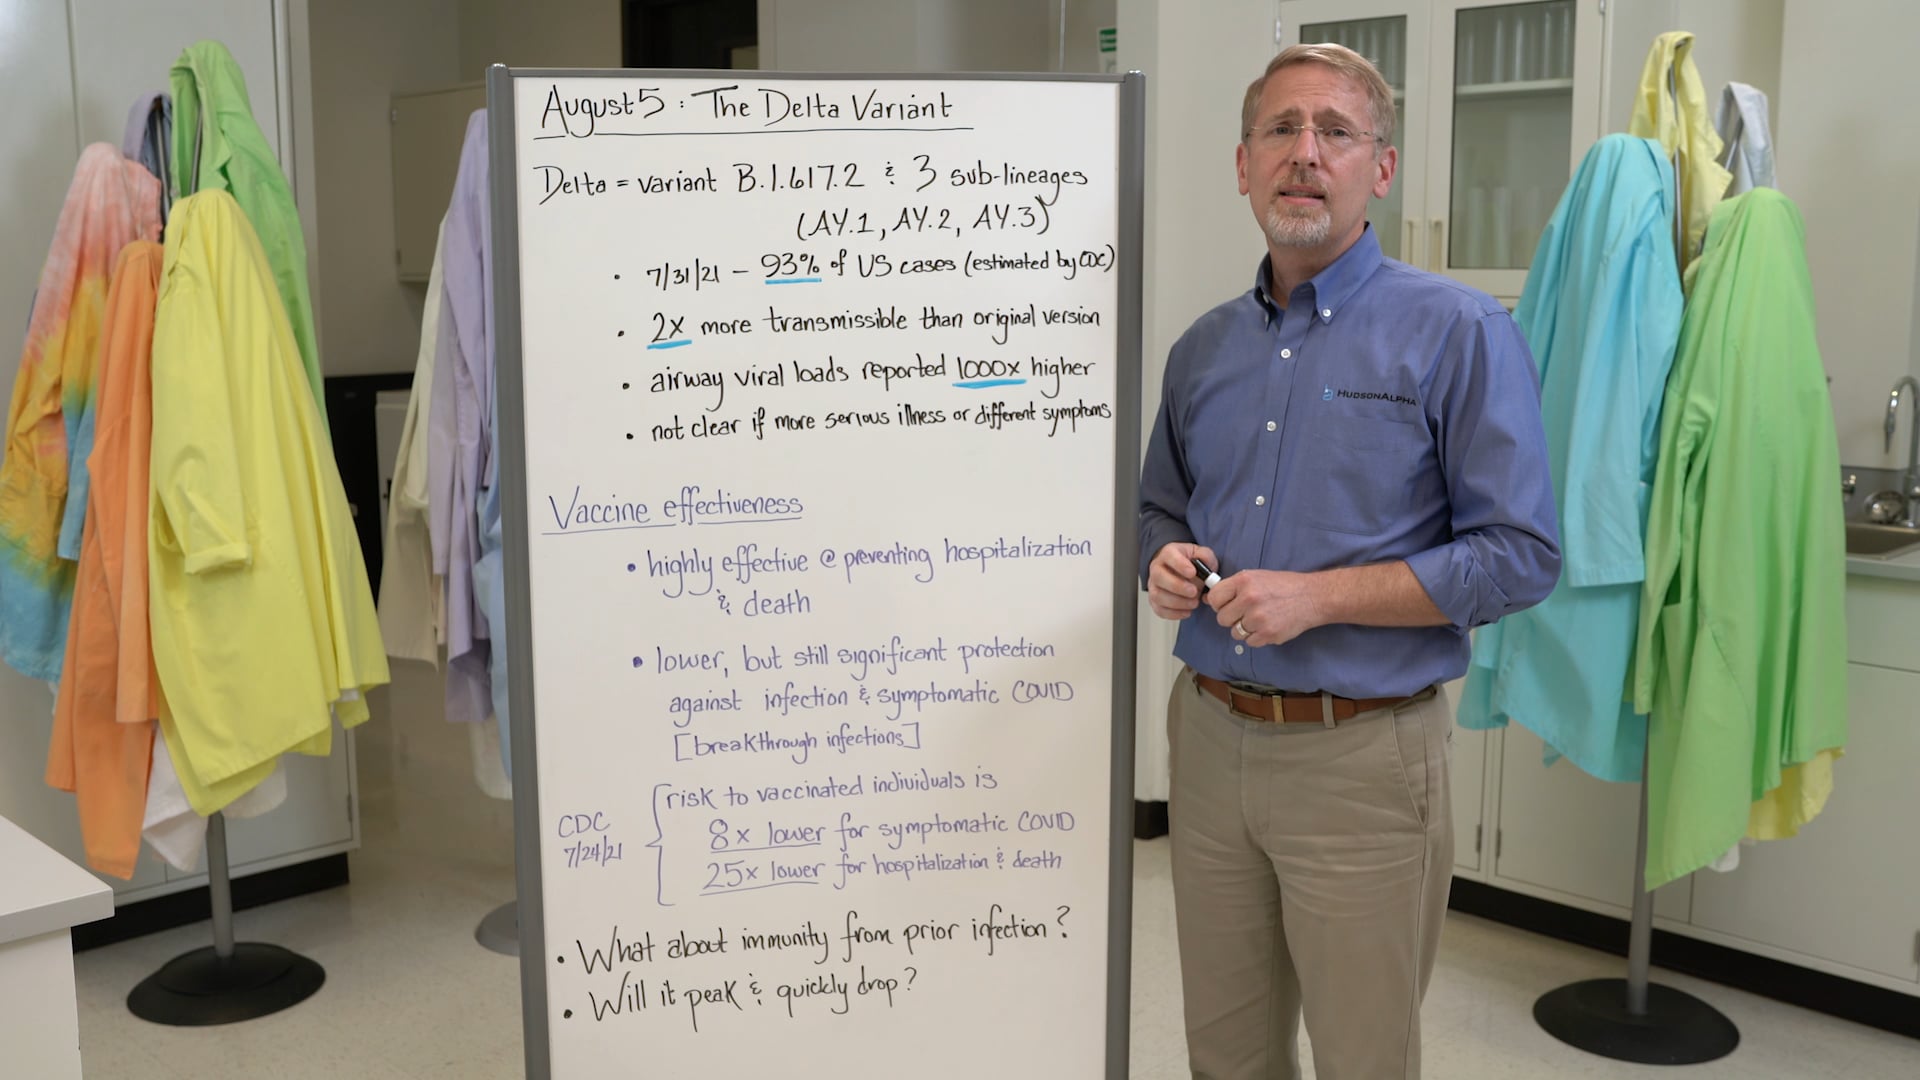 August 5 : The Delta Variant
Delta = variant B.1.617.2 & 3 sub-lineages
(AY.1, AY.2, AY.3)
• 7/31/21 – 93% of US cases (estimated by CDC)
• 2x more transmissible than original version
• airway viral loads reported 1000x higher
• not clear if more serious illness or different symptoms
Vaccine effectiveness
• highly effective @ preventing hospitalization
& death
• lower, but still significant protection
against infection & symptomatic COVID
[breakthrough infections]
CDC
7/24/21
risk to vaccinated individuals is
8x lower for symptomatic COVID
25x lower for hospitalization & death
• What about immunity from prior infection?
• Will it peak & quickly drop?
HUDSONALPHA